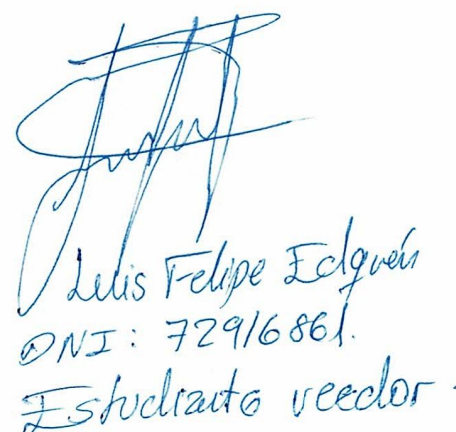 Luis Felipe Edquén
DNI: 72916861.
Estudiante veedor.